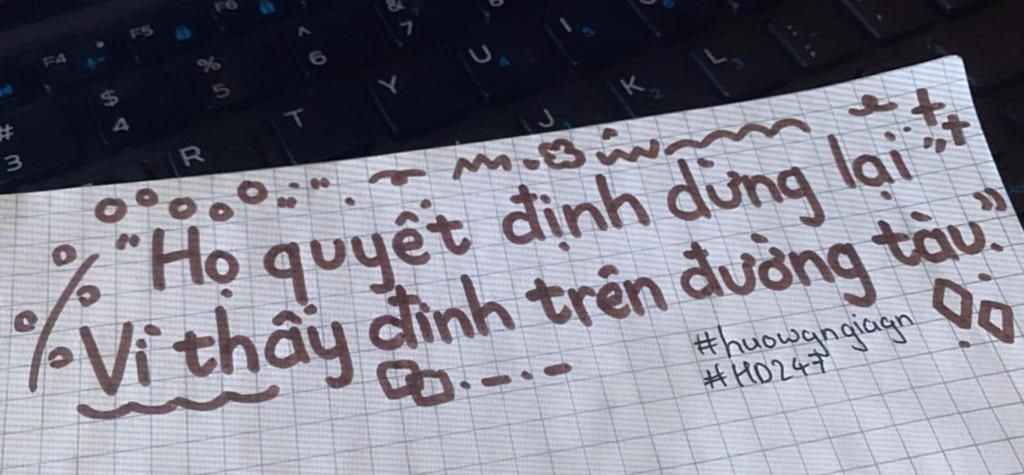 F4 F5 F6
# 3 $ 4 % 5 ^ 6 & 7 8
R T Y U 4 I 5
J K 2 L 3
"Họ quyết định dừng lại"
Vì thấy đinh trên đường tàu."
#huowgngiagn
#HD247